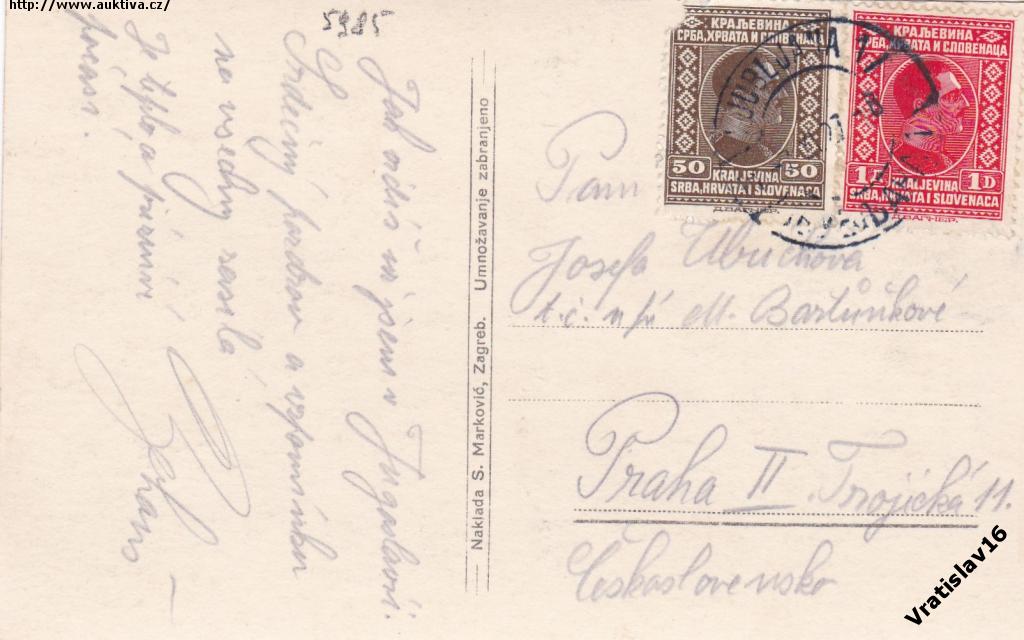 http://www.auktiva.cz/
5985
Jak vidíš já jsem v Jugoslavii.
Srdečný pozdrav a vzpomínku
na všechny zasílá
Je teplo a příjemné
КРАЉЕВИНА
СРБА, ХРВАТА И СЛОВЕНАЦА
50 50
KRALJEVINA
SRBA, HRVATA I SLOVENACA
ДЕЛ. ИЧЕР.
КРАЉЕВИНА
СРБА, ХРВАТА И СЛОВЕНАЦА
1 1D
KRALJEVINA
SRBA, HRVATA I SLOVENACA
LJUBLJANA 1
Naklada S. Marković, Zagreb. Umnožavanje zabranjeno
Josefa
t. č. u pí M. Bartůňkové
Praha II. Trojická 11.
Československo
Vratislav16